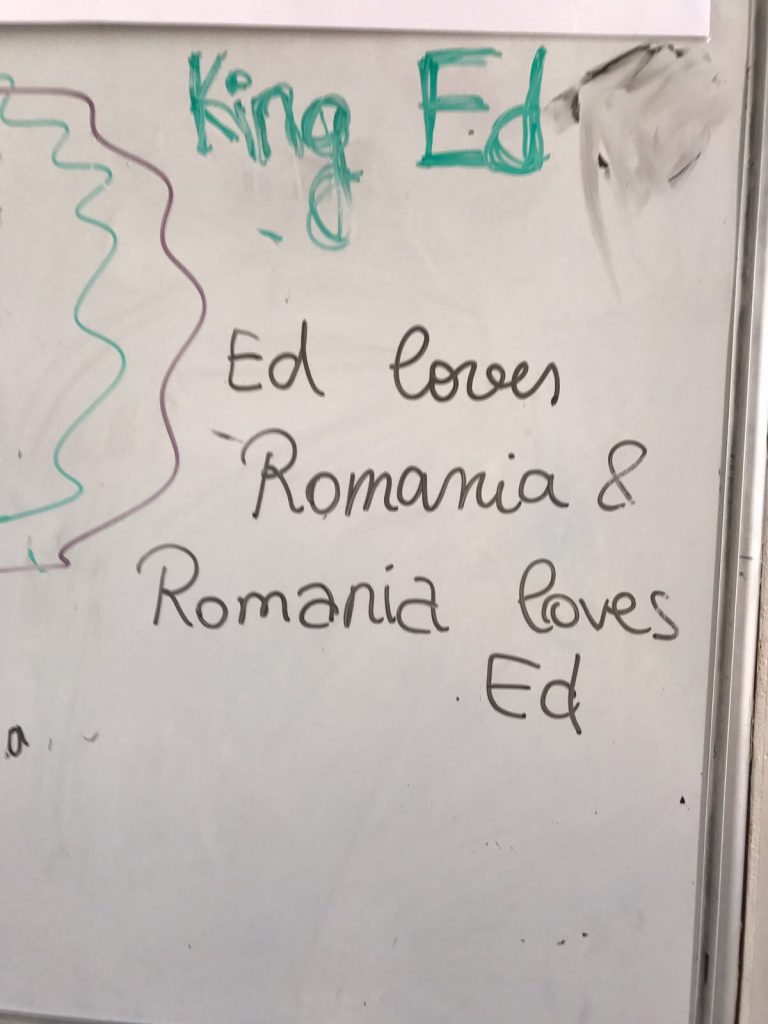 King Ed
Ed loves
Romania &
Romania loves
Ed
a